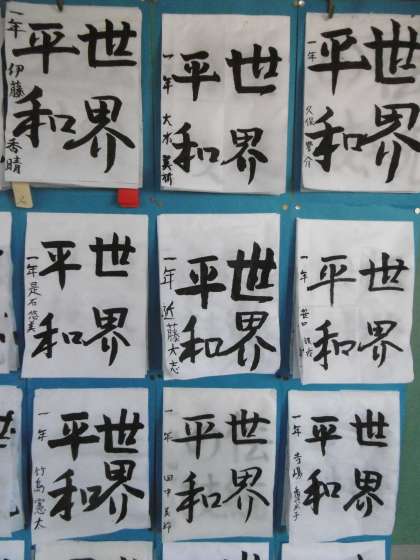 世界
平和
一年 伊藤 香晴
世界
平和
一年 大木
世界
平和
一年 久保
世界
平和
一年 是石 悠美
世界
平和
一年 近藤大志
世界
平和
一年
世界
平和
一年 竹島 憲太
世界
平和
一年 田中
世界
平和
一年